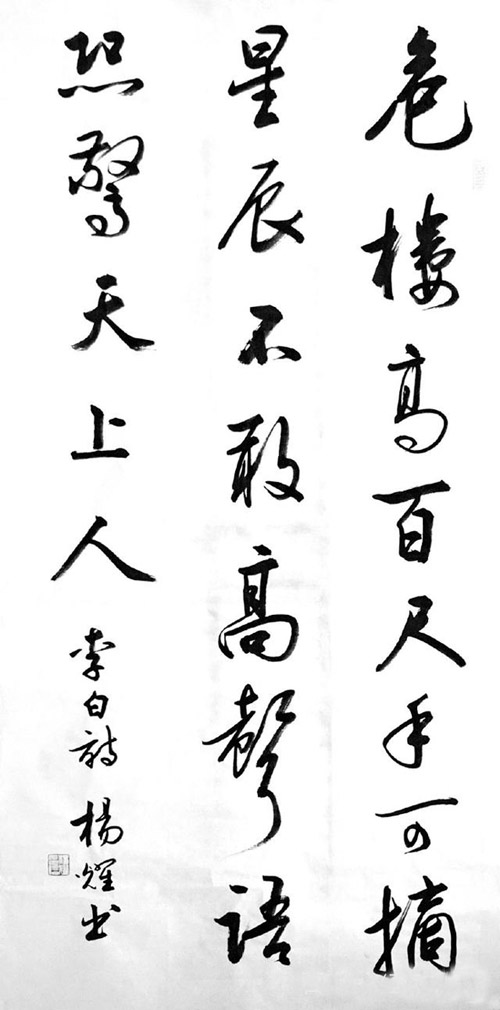 危楼高百尺手可摘
星辰不敢高聲語
恐驚天上人
李白詩 楊耀书